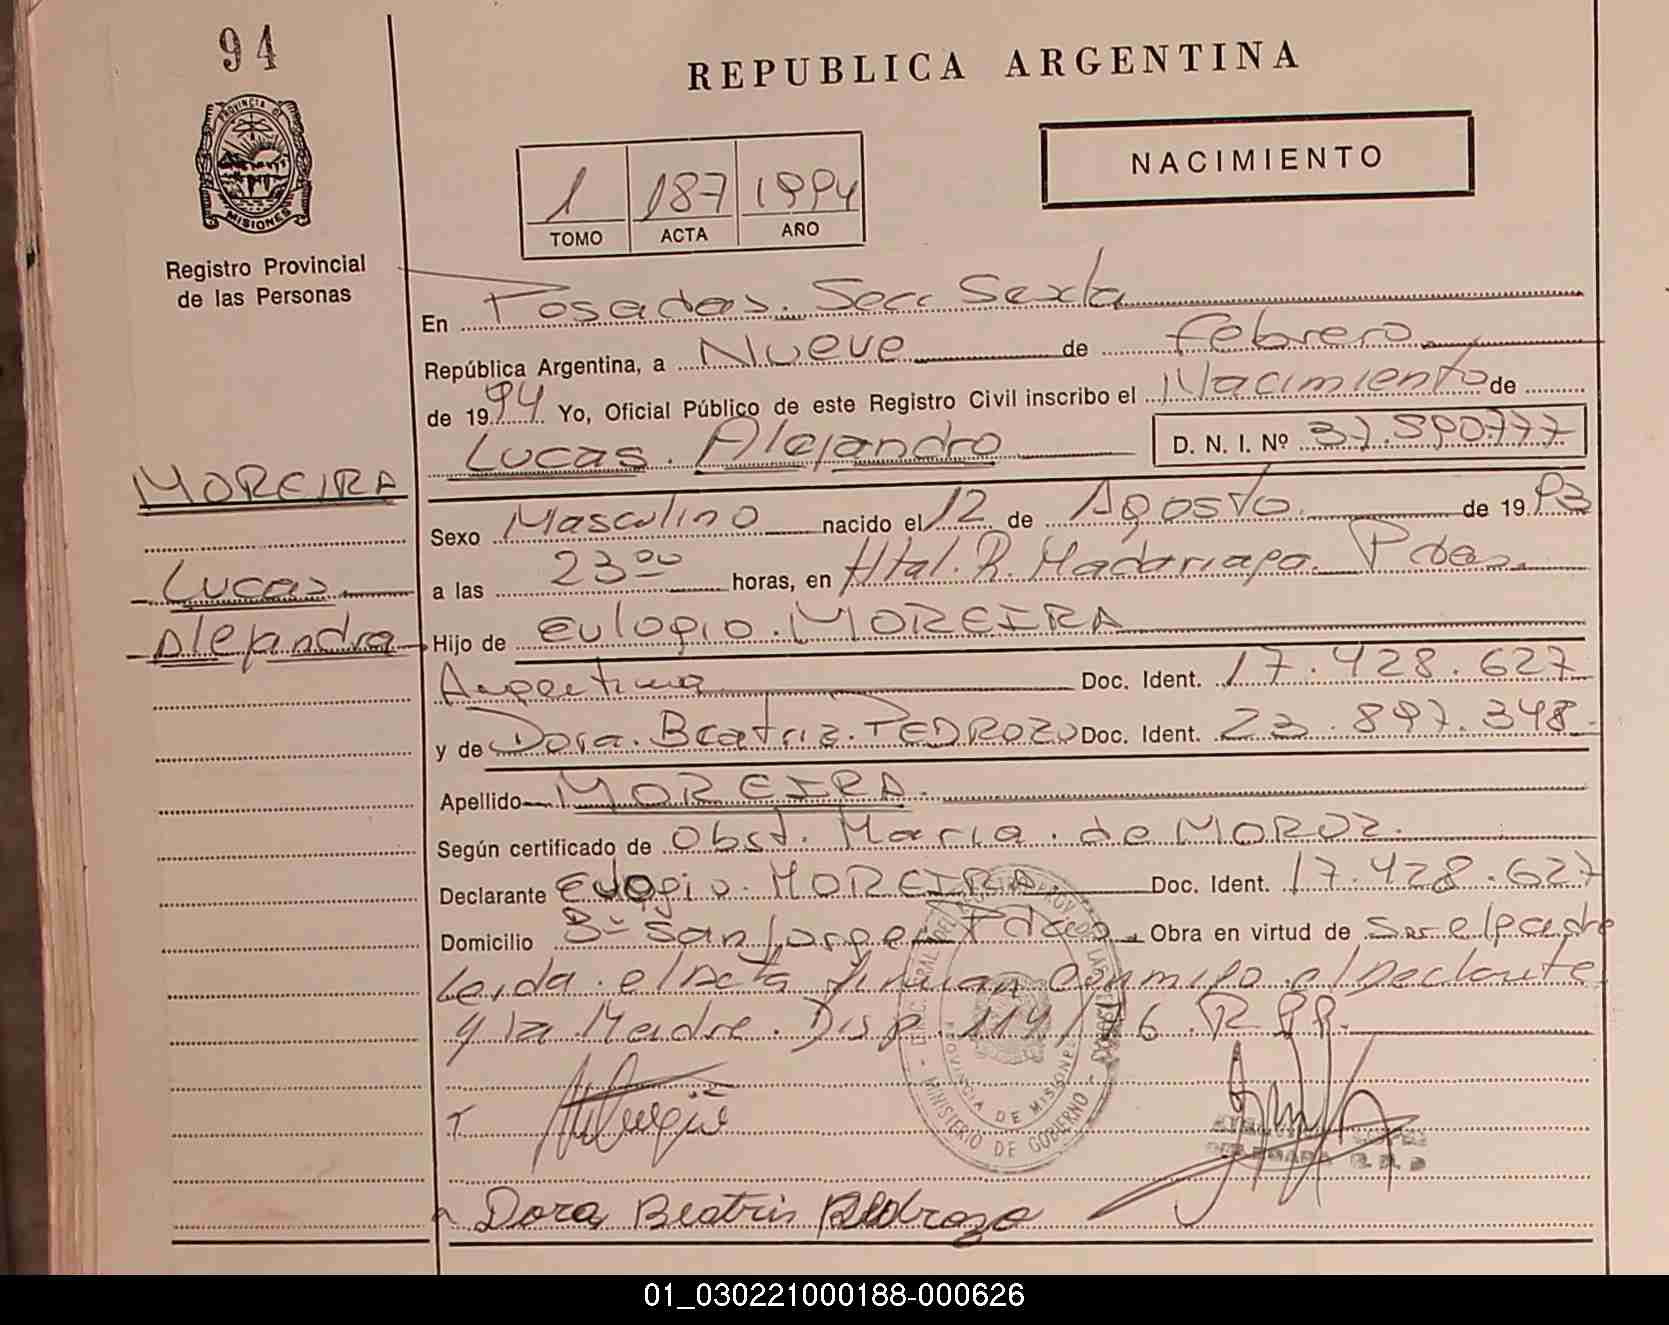 94
REPUBLICA ARGENTINA
PROVINCIA DE
MISIONES
Registro Provincial
de las Personas
1 187 1994
TOMO ACTA AÑO
NACIMIENTO
En Posadas. Secc Sexta
República Argentina, a Nueve de febrero
de 1994 Yo, Oficial Público de este Registro Civil inscribo el Nacimiento de
Lucas. Alejandro D. N. I. Nº 37.590.777
MOREIRA
Lucas
Alejandro
Sexo Masculino nacido el 12 de Agosto de 1993
a las 23 00 horas, en Htal. R. Madariaga. Pdas.
Hijo de Eulogio. MOREIRA
Argentina Doc. Ident. 17.428.627
y de Dora. Beatriz. PEDROZO Doc. Ident. 23.897.348
Apellido MOREIRA
Según certificado de Obst. Maria. de MOROZ.
Declarante Eulogio. MOREIRA Doc. Ident. 17.428.627
Domicilio Bº San Jorge Pdas Obra en virtud de Ser el padre
Leida. el Acta firman Conmigo el Declarante
y la Madre. Disp. 114/76. R.PP.
PROVINCIA DE MISIONES
MINISTERIO DE GOBIERNO
Dora Beatris Pedrozo
01_030221000188-000626